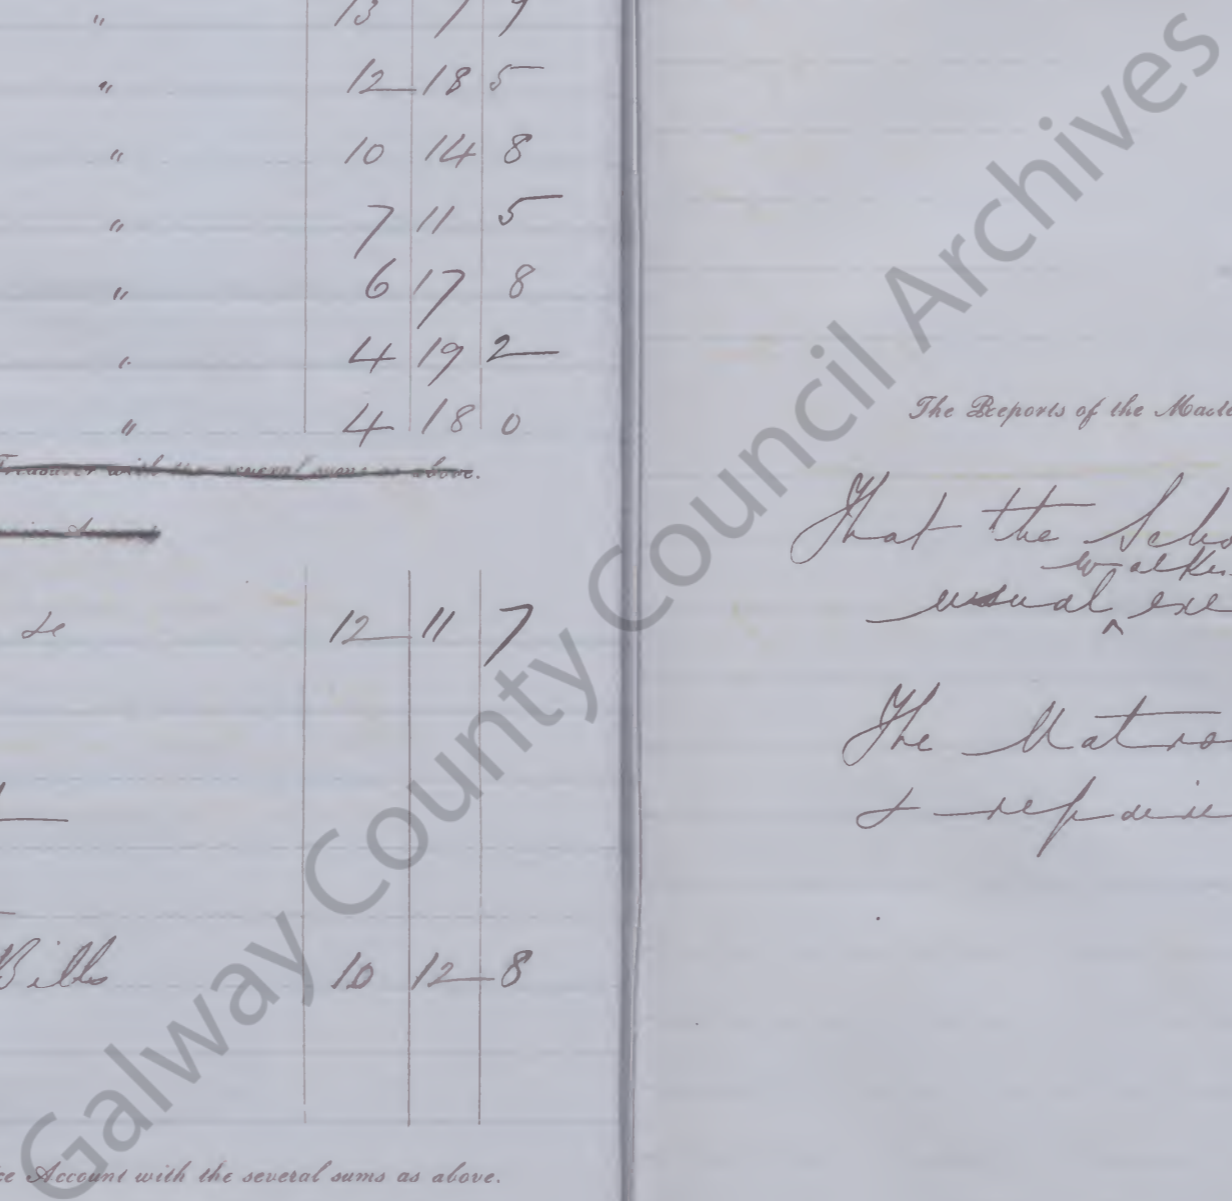 " 13 7 9
" 12 18 5
" 10 14 8
" 7 11 5
" 6 17 8
" 4 19 2
" 4 18 0
Treasurer with the several sums as above.
12 11 7
Bills 10 12 8
Account with the several sums as above.
The Reports of the Maste
That the Scho
walki
usual ^ exe
The Matro
& repaire
Galway County Council Archives